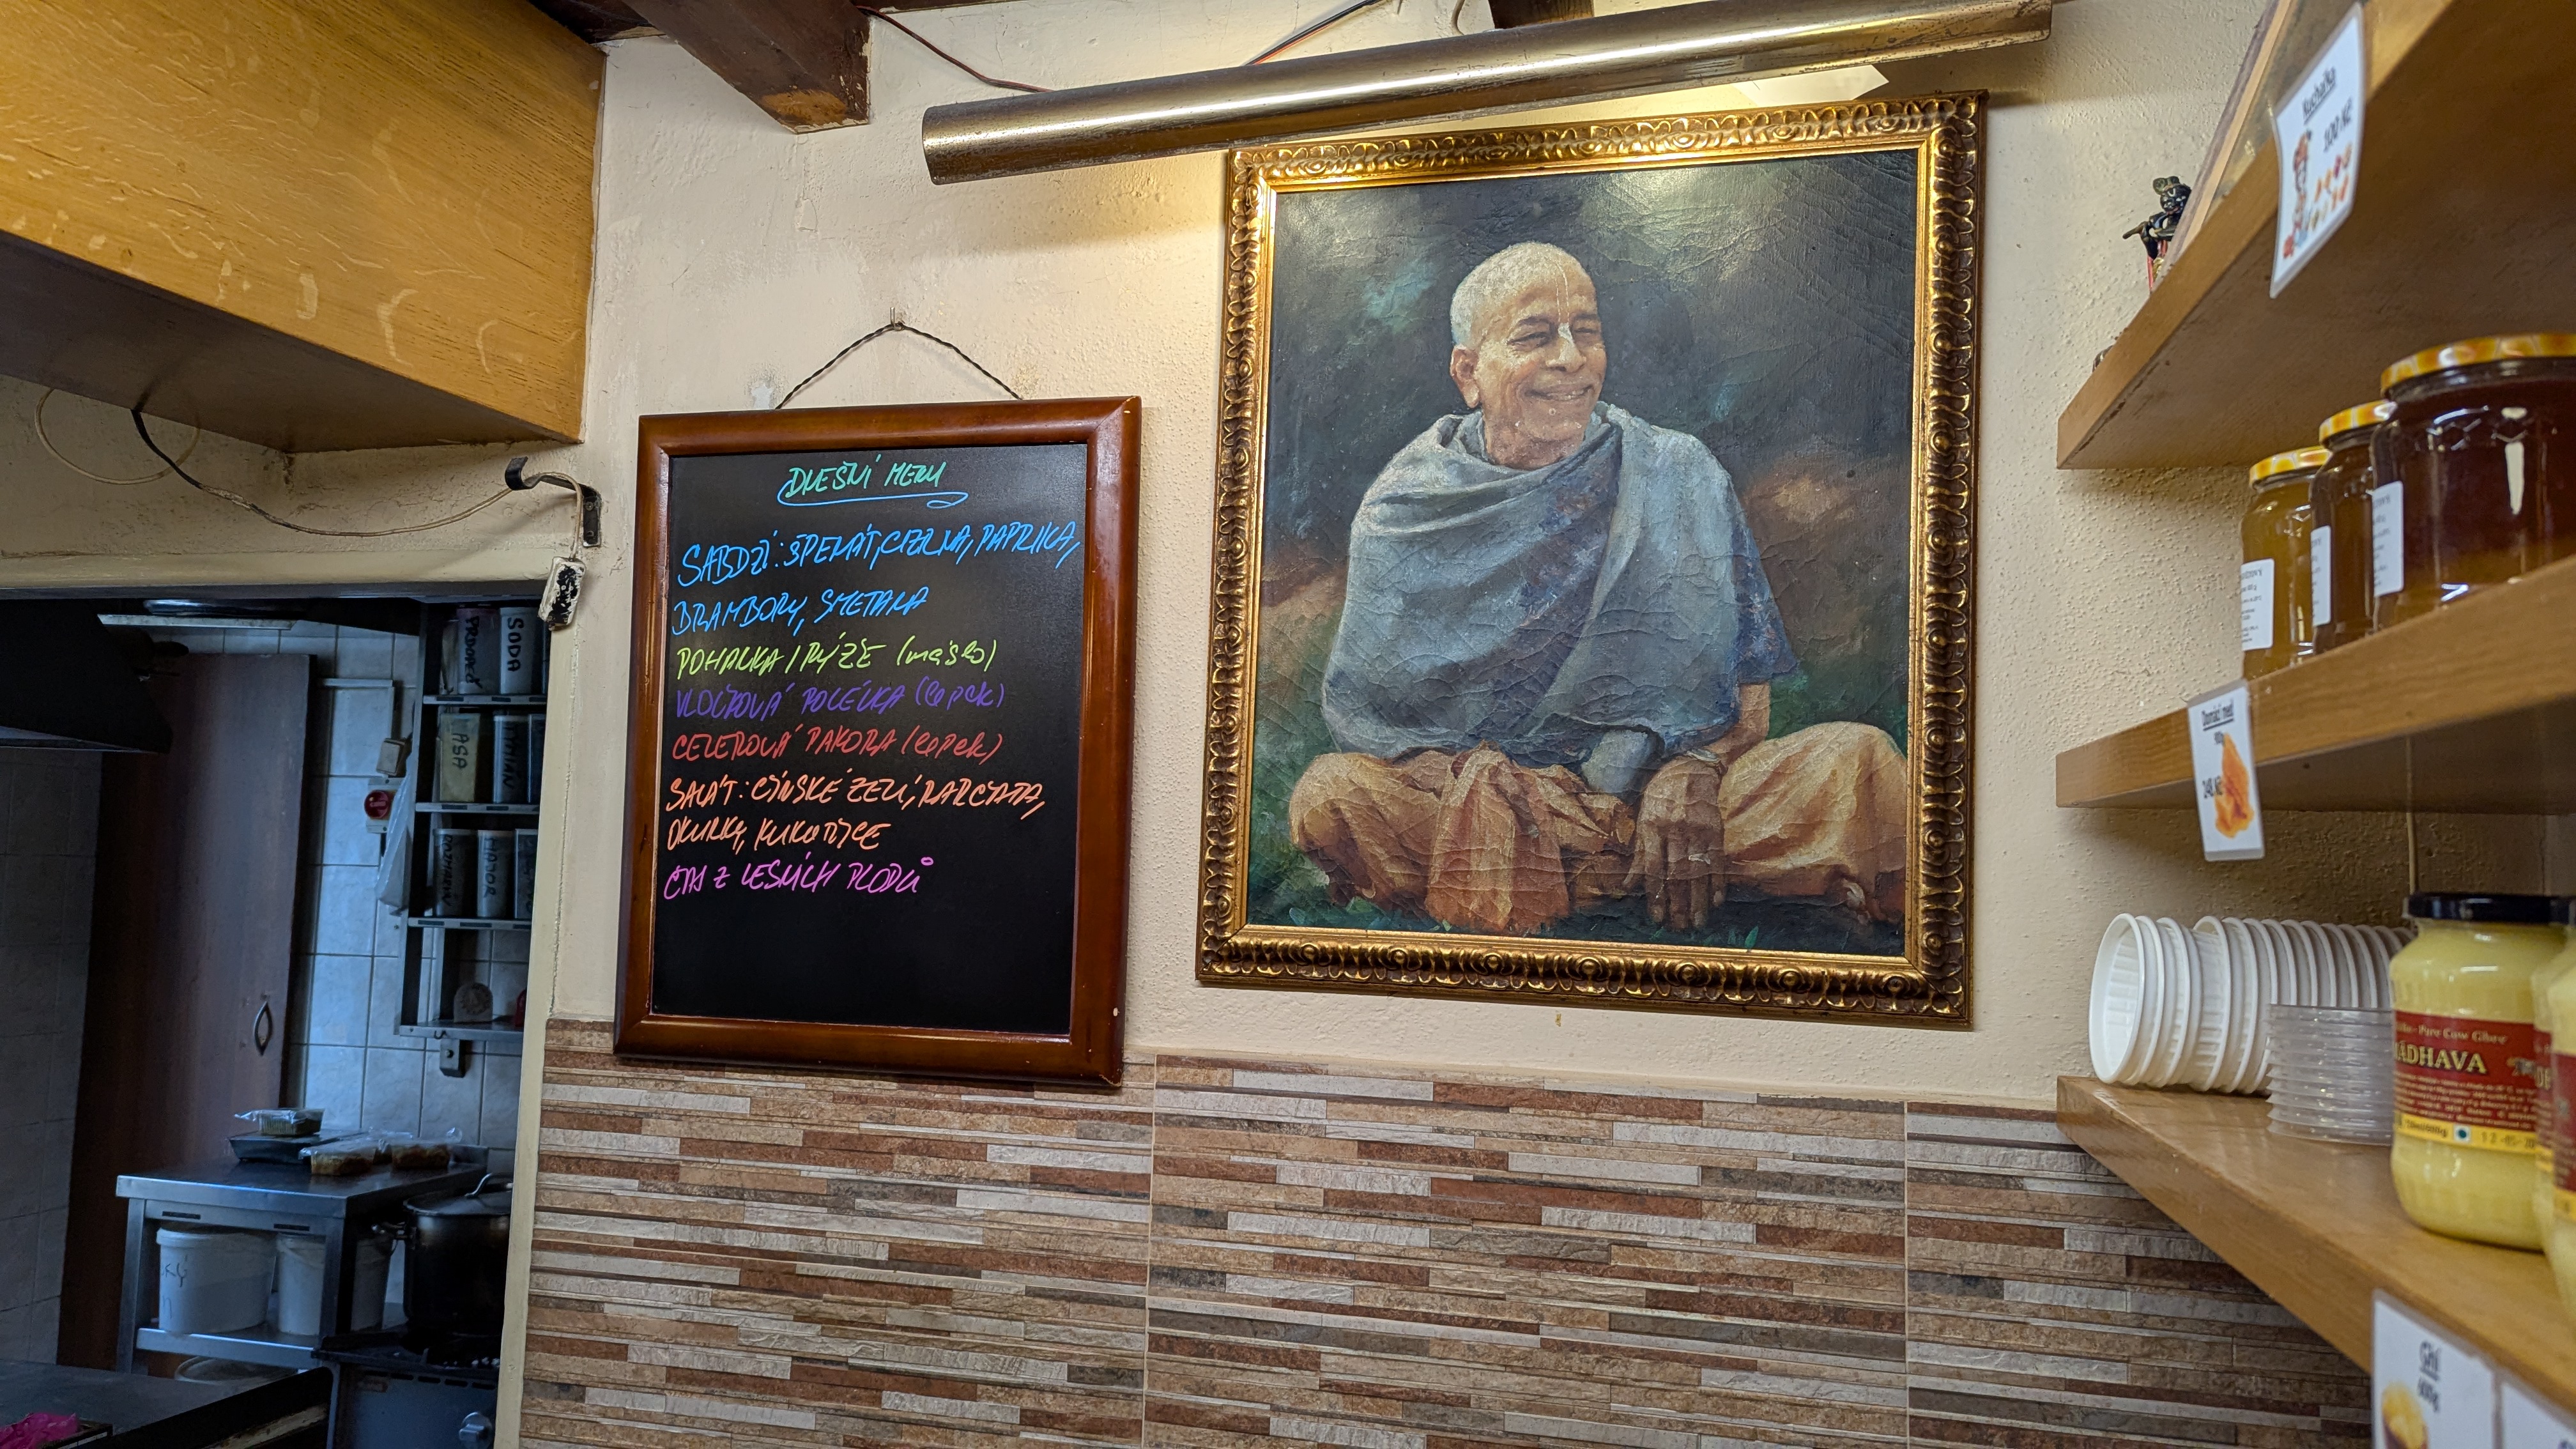 DNEŠNÍ MENU
SABDŽÍ: ŠPENÁT, CIZRNA, PAPRIKA,
BRAMBORY, SMETANA
POHANKA / RÝŽE (máslo)
VLOČKOVÁ POLÉVKA (lepek)
CELEROVÁ PAKORA (lepek)
SALÁT: ČÍNSKÉ ZELÍ, RAJČATA,
OKURKY, KUKUŘICE
ČAJ Z LESNÍCH PLODŮ
SODA
MAJOR
Kuchařka
100 Kč
Domácí med
900g
248 Kč
Pure Cow Ghee
MĀDHAVA
Ghí